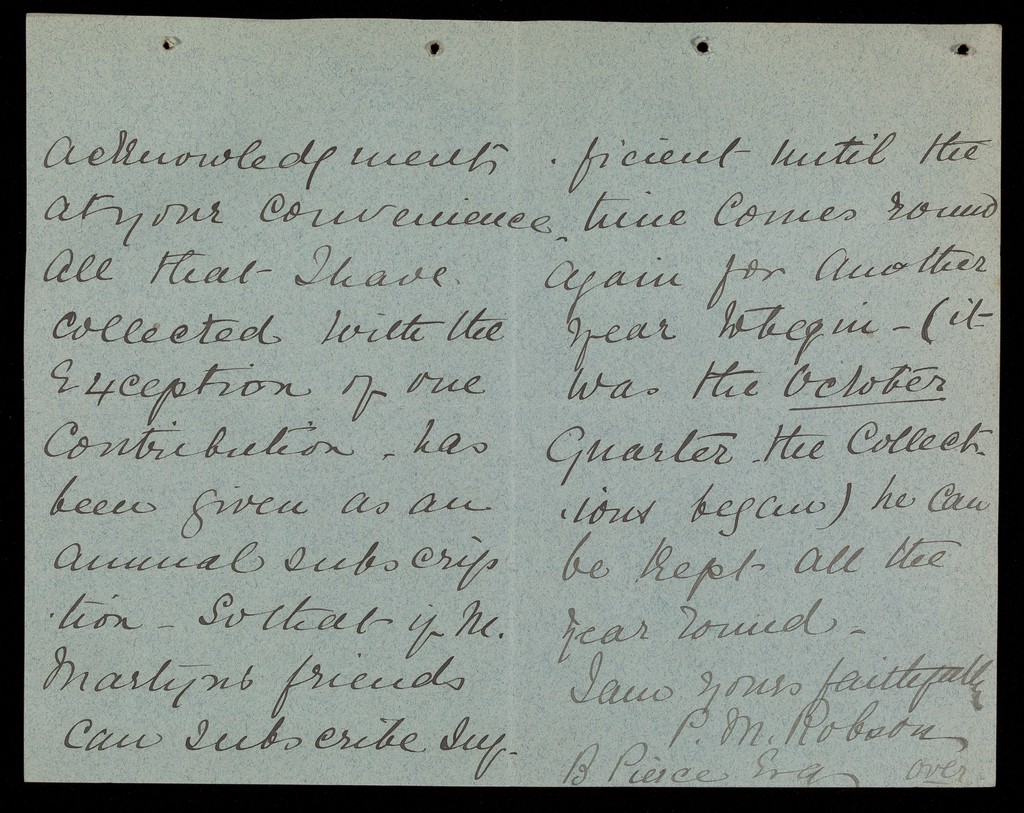 acknowledgments
at your convenience.
All that I have
collected with the
Exception of one
Contribution. has
been given as an
annual subscrip
·tion - So that if M.
Martyns friends
can subscribe suf-
·ficient until the
time Comes round
again for another
year to begin - (it
was the October
Quarter the Collect-
·ions began) he can
be kept all the
year round -
I am yours faithfully
P. M. Robson
B Pierce Esq over